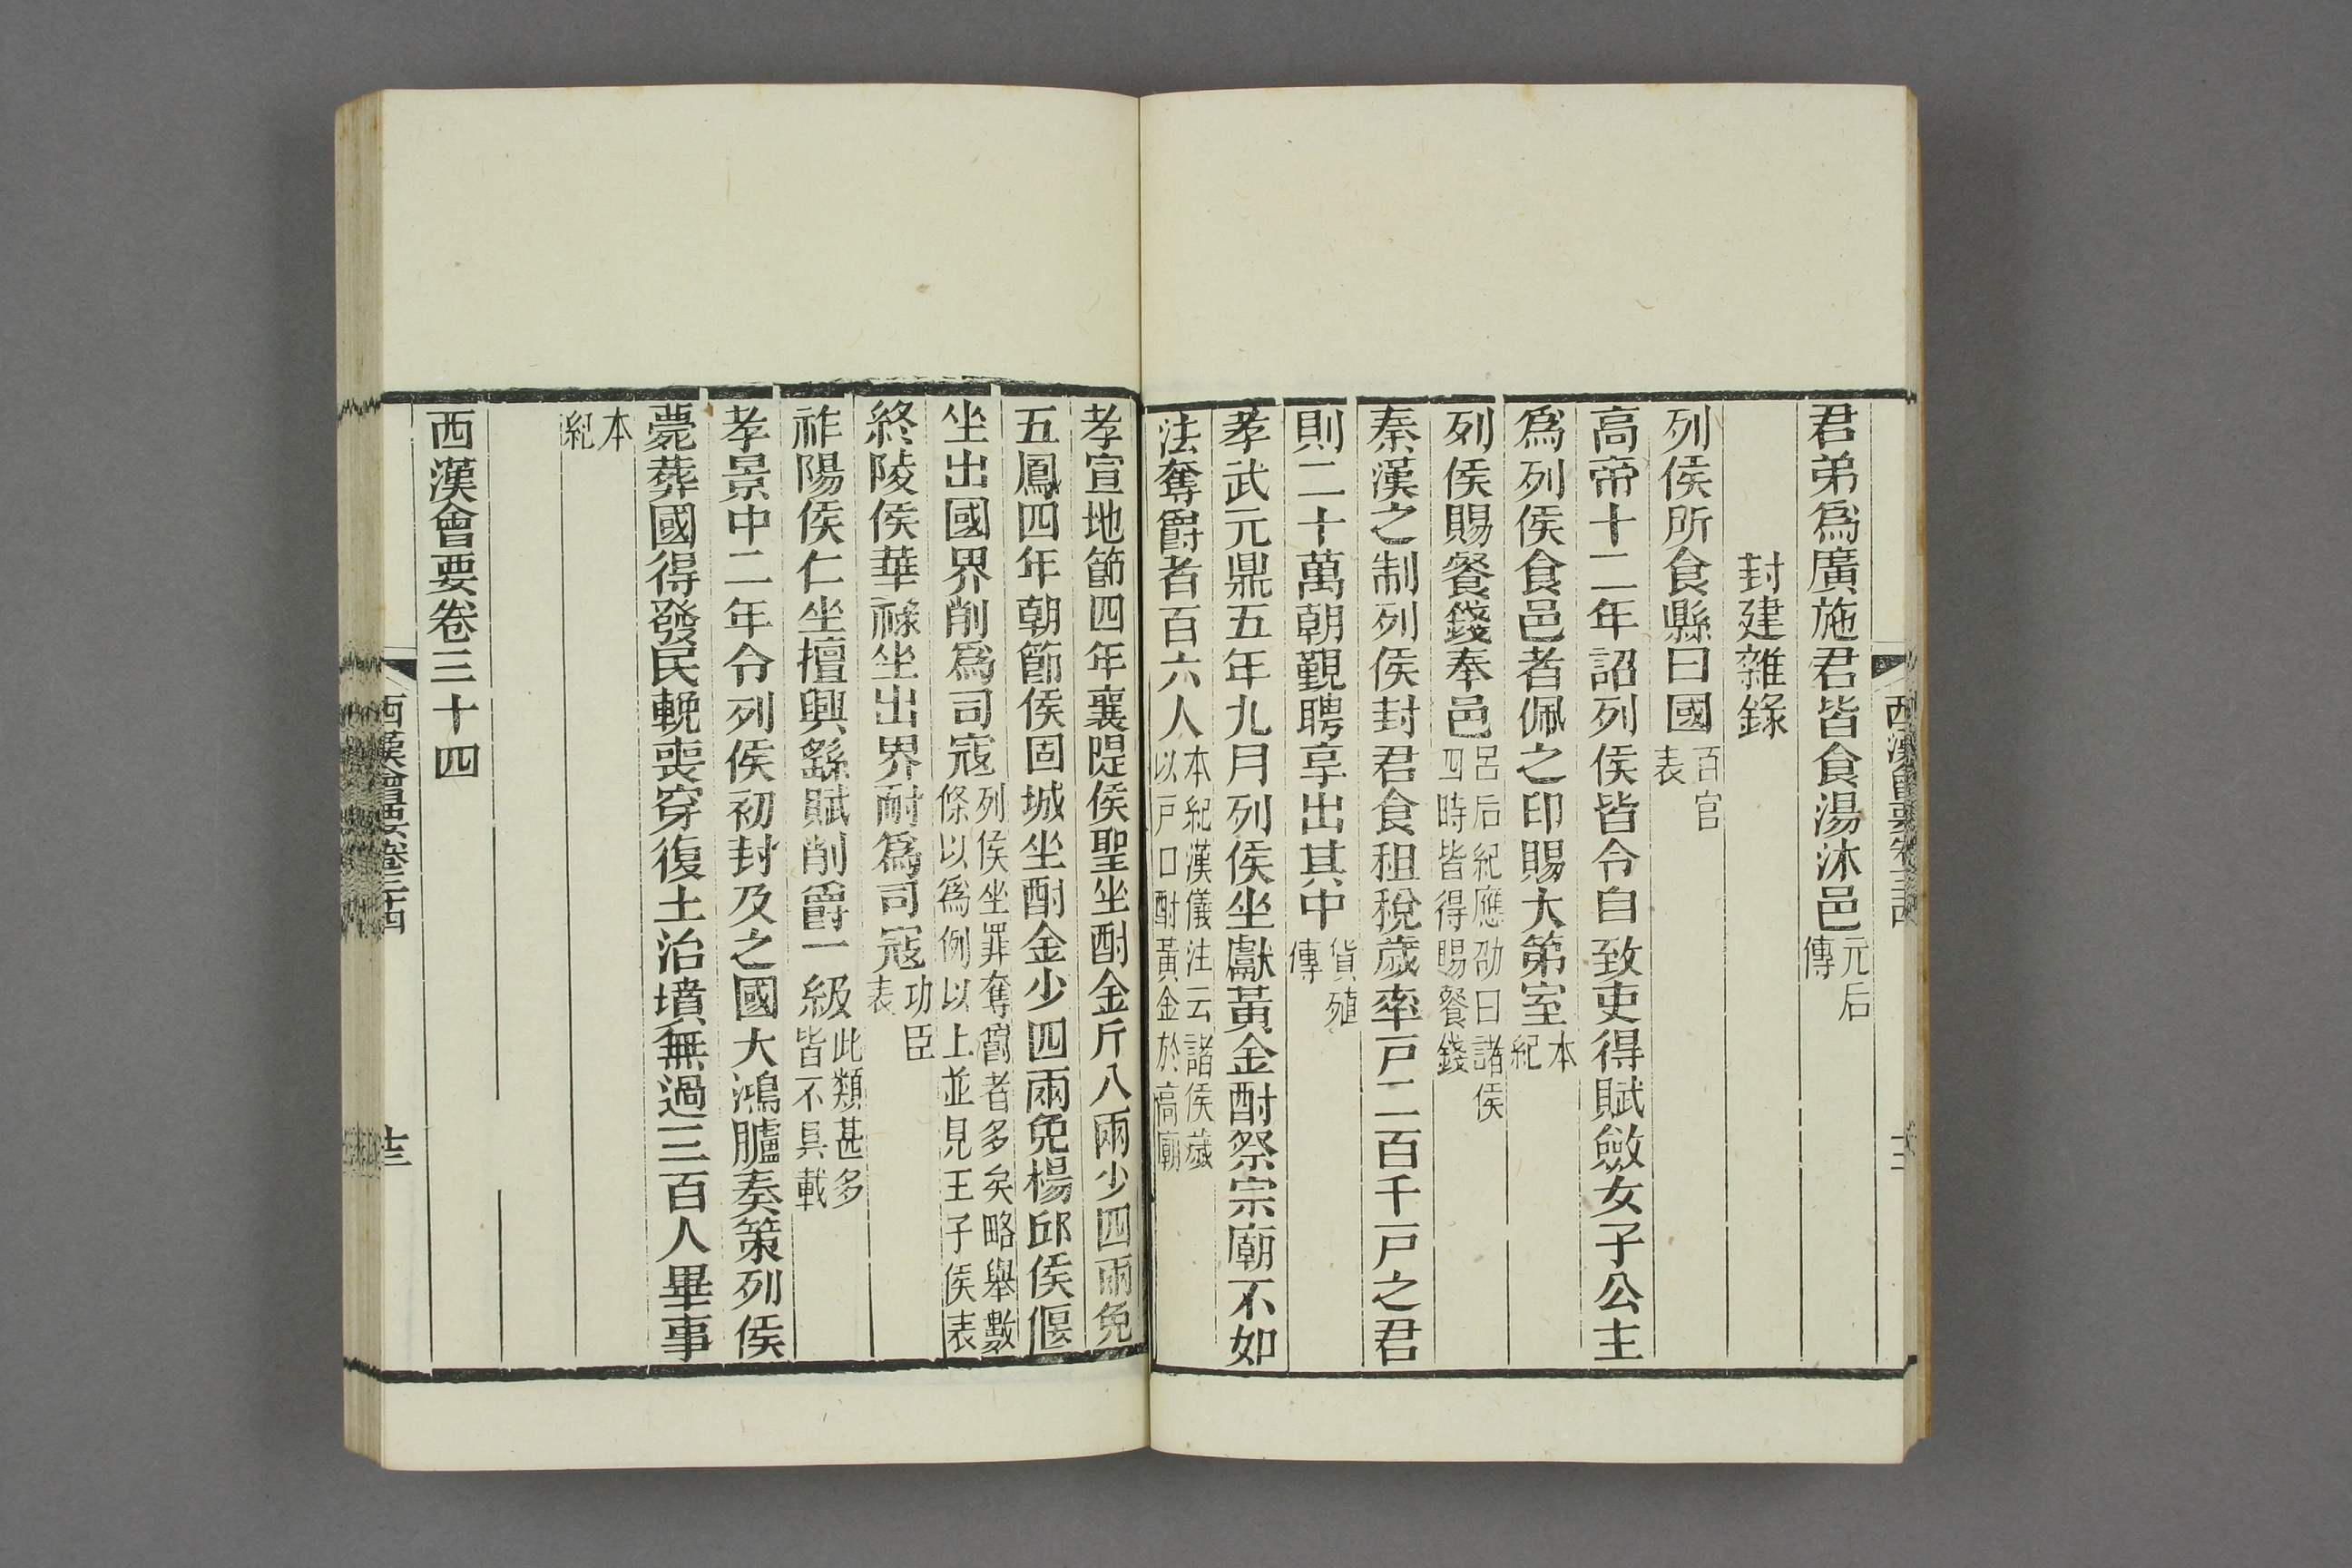 君弟爲廣施君皆食湯沐邑元后傳
封建雜錄
列侯所食縣曰國百官表
高帝十二年詔列侯皆令自致吏得賦斂女子公主
爲列侯食邑者佩之印賜大第室本紀
列侯賜餐錢奉邑呂后紀應劭曰諸侯四時皆得賜餐錢
秦漢之制列侯封君食租稅歲率戸二百千戸之君
則二十萬朝覲聘享出其中貨殖傳
孝武元鼎五年九月列侯坐獻黃金酎祭宗廟不如
法奪爵者百六人本紀漢儀注云諸侯歲以戸口酎黃金於高廟
孝宣地節四年襄隄侯聖坐酎金斤八兩少四兩免
五鳳四年朝節侯固城坐酎金少四兩免楊邱侯偃
坐出國界削爲司寇列侯坐罪奪爵者多矣略舉數條以爲例以上並見王子侯表
終陵侯華祿坐出界耐爲司寇功臣表
祚陽侯仁坐擅興繇賦削爵一級此類甚多皆不具載
孝景中二年令列侯初封及之國大鴻臚奏策列侯
薨葬國得發民輓喪穿復土治墳無過三百人畢事
本紀
西漢會要卷三十四
西漢會要卷三十四
十三